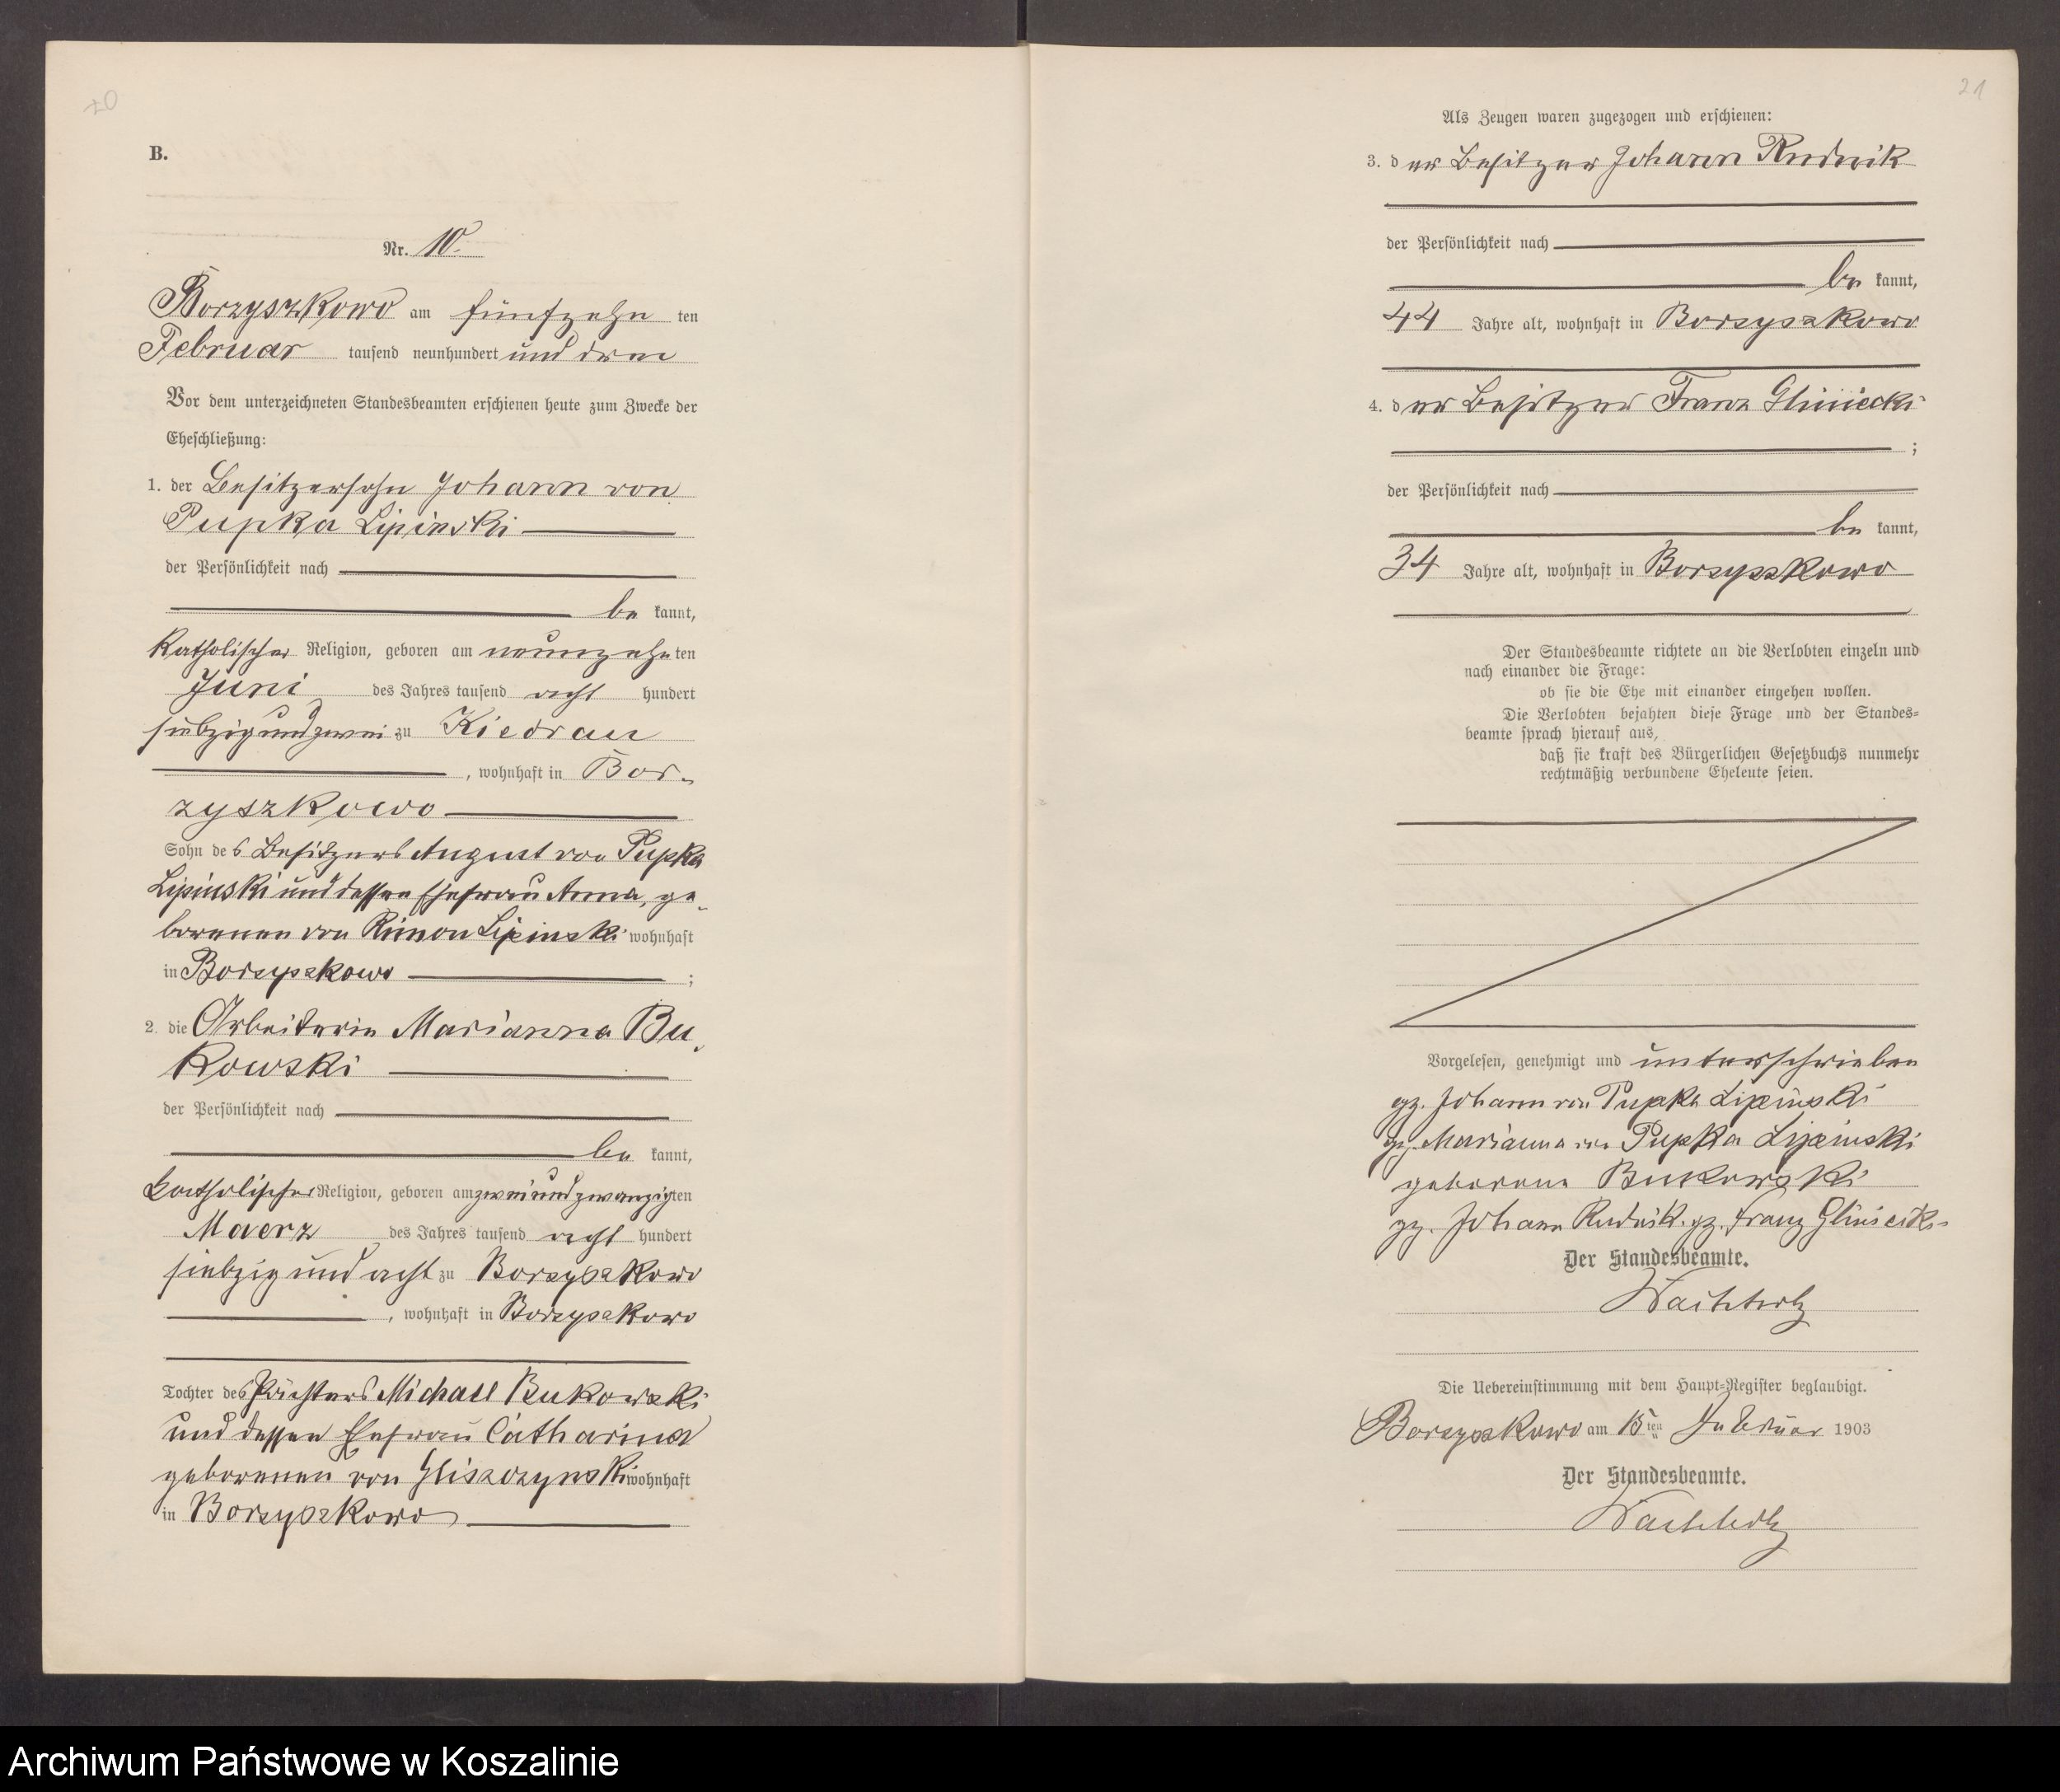 20
B.
Nr. 10.
Borzyszkowo am fünfzehn ten
Februar tausend neunhundert und drei
Vor dem unterzeichneten Standesbeamten erschienen heute zum Zwecke der
Eheschließung:
1. der Besitzersohn Johann von
Pupka Lipinski
der Persönlichkeit nach
be kannt,
katholischer Religion, geboren am neunzehn ten
Juni des Jahres tausend acht hundert
siebzig und zwei zu Kiedrau
, wohnhaft in Bor-
zyszkowo
Sohn des Besitzers August von Pupka
Lipinski und dessen Ehefrau Anna, ge-
borenen von Rimon Lipinski wohnhaft
in Borzyszkowo ;
2. die Arbeiterin Marianna Bu-
kowski
der Persönlichkeit nach
be kannt,
katholischer Religion, geboren am zwei und zwanzigten
Maerz des Jahres tausend acht hundert
siebzig und acht zu Borzyszkowo
, wohnhaft in Borzyszkowo
Tochter des Pächters Michael Bukowski
und dessen Ehefrau Catharina
geborenen von Gliszczynski wohnhaft
in Borzyszkowo
21
Als Zeugen waren zugezogen und erschienen:
3. der Besitzer Johann Rudnik
der Persönlichkeit nach
be kannt,
44 Jahre alt, wohnhaft in Borzyszkowo
4. der Besitzer Franz Gliniecki
;
der Persönlichkeit nach
be kannt,
34 Jahre alt, wohnhaft in Borzyszkowo
Der Standesbeamte richtete an die Verlobten einzeln und
nach einander die Frage:
ob sie die Ehe mit einander eingehen wollen.
Die Verlobten bejahten diese Frage und der Standes-
beamte sprach hierauf aus,
daß sie kraft des Bürgerlichen Gesetzbuchs nunmehr
rechtmäßig verbundene Eheleute seien.
Vorgelesen, genehmigt und unterschrieben
gz. Johann von Pupka Lipinski
gz. Marianna von Pupka Lipinski
geborene Bukowski
gz. Johann Rudnik. gz. Franz Gliniecki
Der Standesbeamte.
Die Uebereinstimmung mit dem Haupt-Register beglaubigt.
Borzyszkowo am 15ten Februar 1903
Der Standesbeamte.
Archiwum Państwowe w Koszalinie